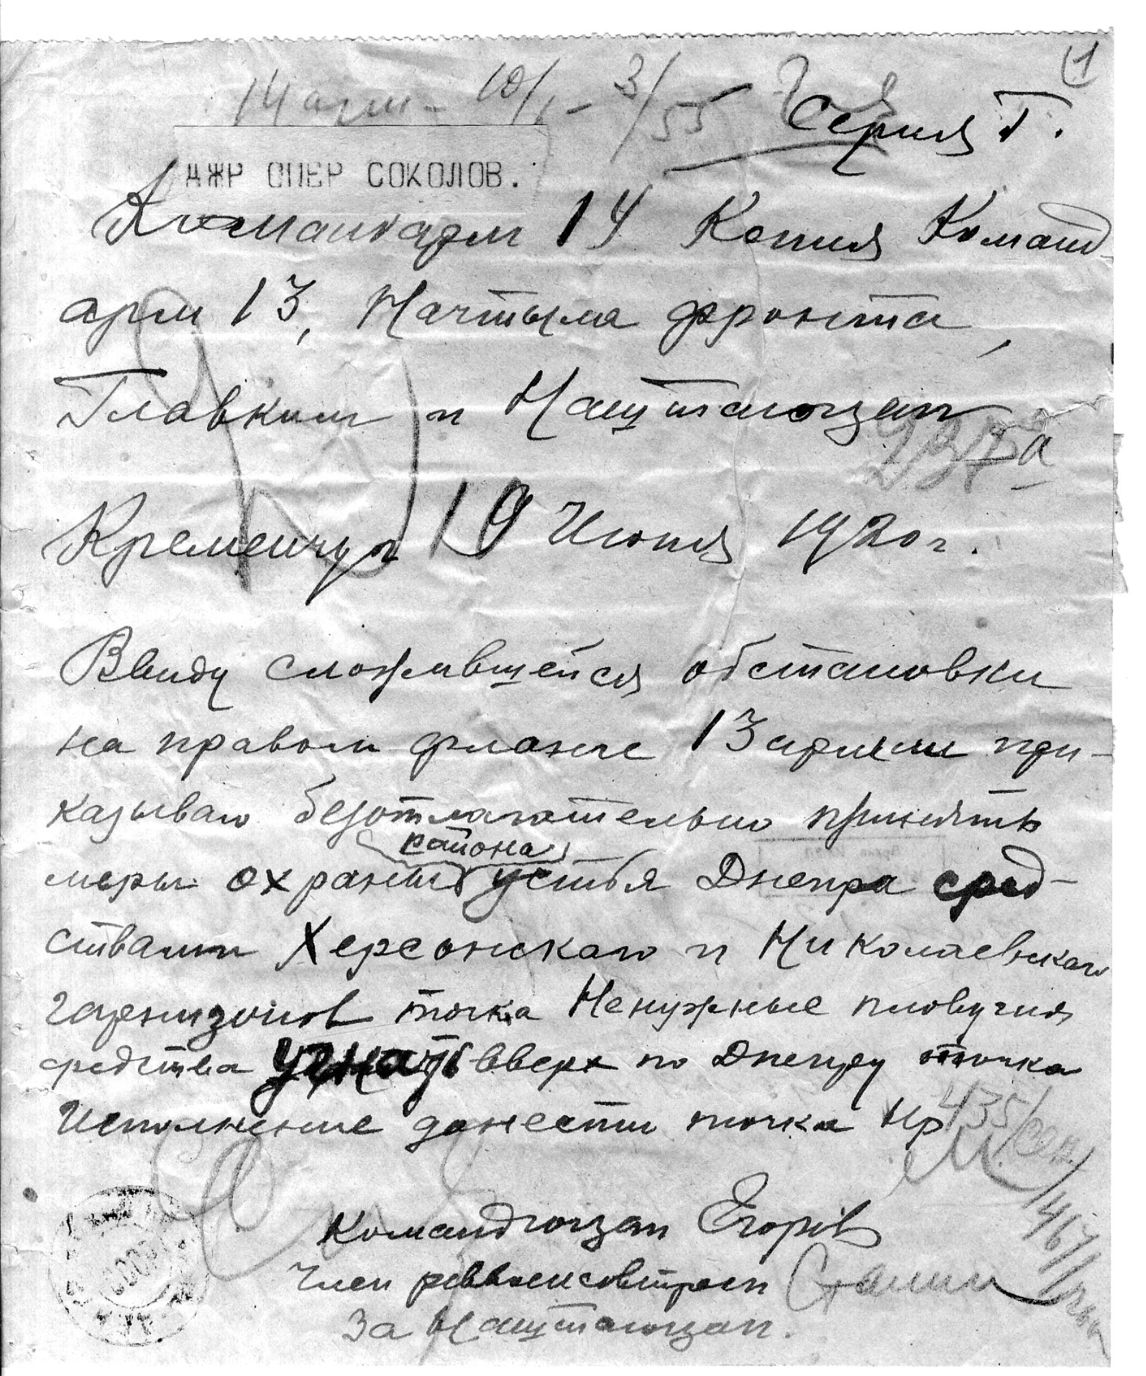 1
14 арм - 10/I - 3/55
Серия Г.
ДЖР ОПЕР СОКОЛОВ.
Командарм 14 Копия Команд
арм 13, Начтыла фронта,
Главком и Наштаюзап
Кременчуг 10 Июня 1920 г.
Ввиду сложившейся обстановки
на правом фланге 13 армии при-
казываю безотлагательно принять
района
меры охраны устья Днепра сред-
ствами Херсонскаго и Николаевскаго
гарнизонов точка Ненужные пловучия
средства угнать вверх по Днепру точка
Исполнение донести точка Нр 435/сек
1467/
Командюгзап Егоров
Член реввоенсовтреп Сталин
За Наштаюгзап.